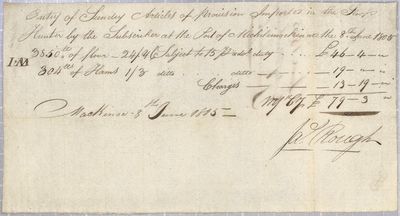 Entry of Sundry Articles of provision Imported in the
Hunter by the Subscriber at the Port of Michilimackinac the 8th June 1815
I·M 3850 lbs of flour — 24/4 Subject to 15 pct ad val duty £ 46 — 4 —
304 lbs of Hams 1/3 ditto ditto — 19 —
Charges — 13 — 19 —
£ 79 — 3
Mackinac 8th June 1815
Jas Rough